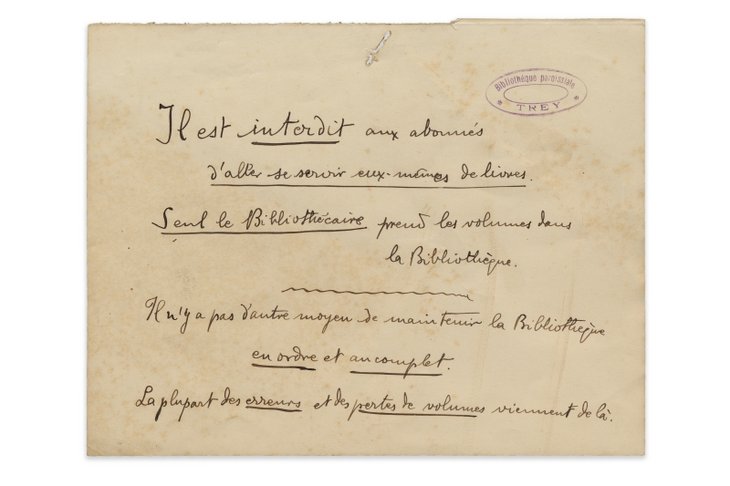 Bibliothèque paroissiale
* TREY *
Il est interdit aux abonnés
d'aller se servir eux-mêmes de livres.
Seul le Bibliothécaire prend les volumes dans
la Bibliothèque.
Il n'y a pas d'autre moyen de maintenir la Bibliothèque
en ordre et au complet.
La plupart des erreurs et des pertes de volumes viennent de là.